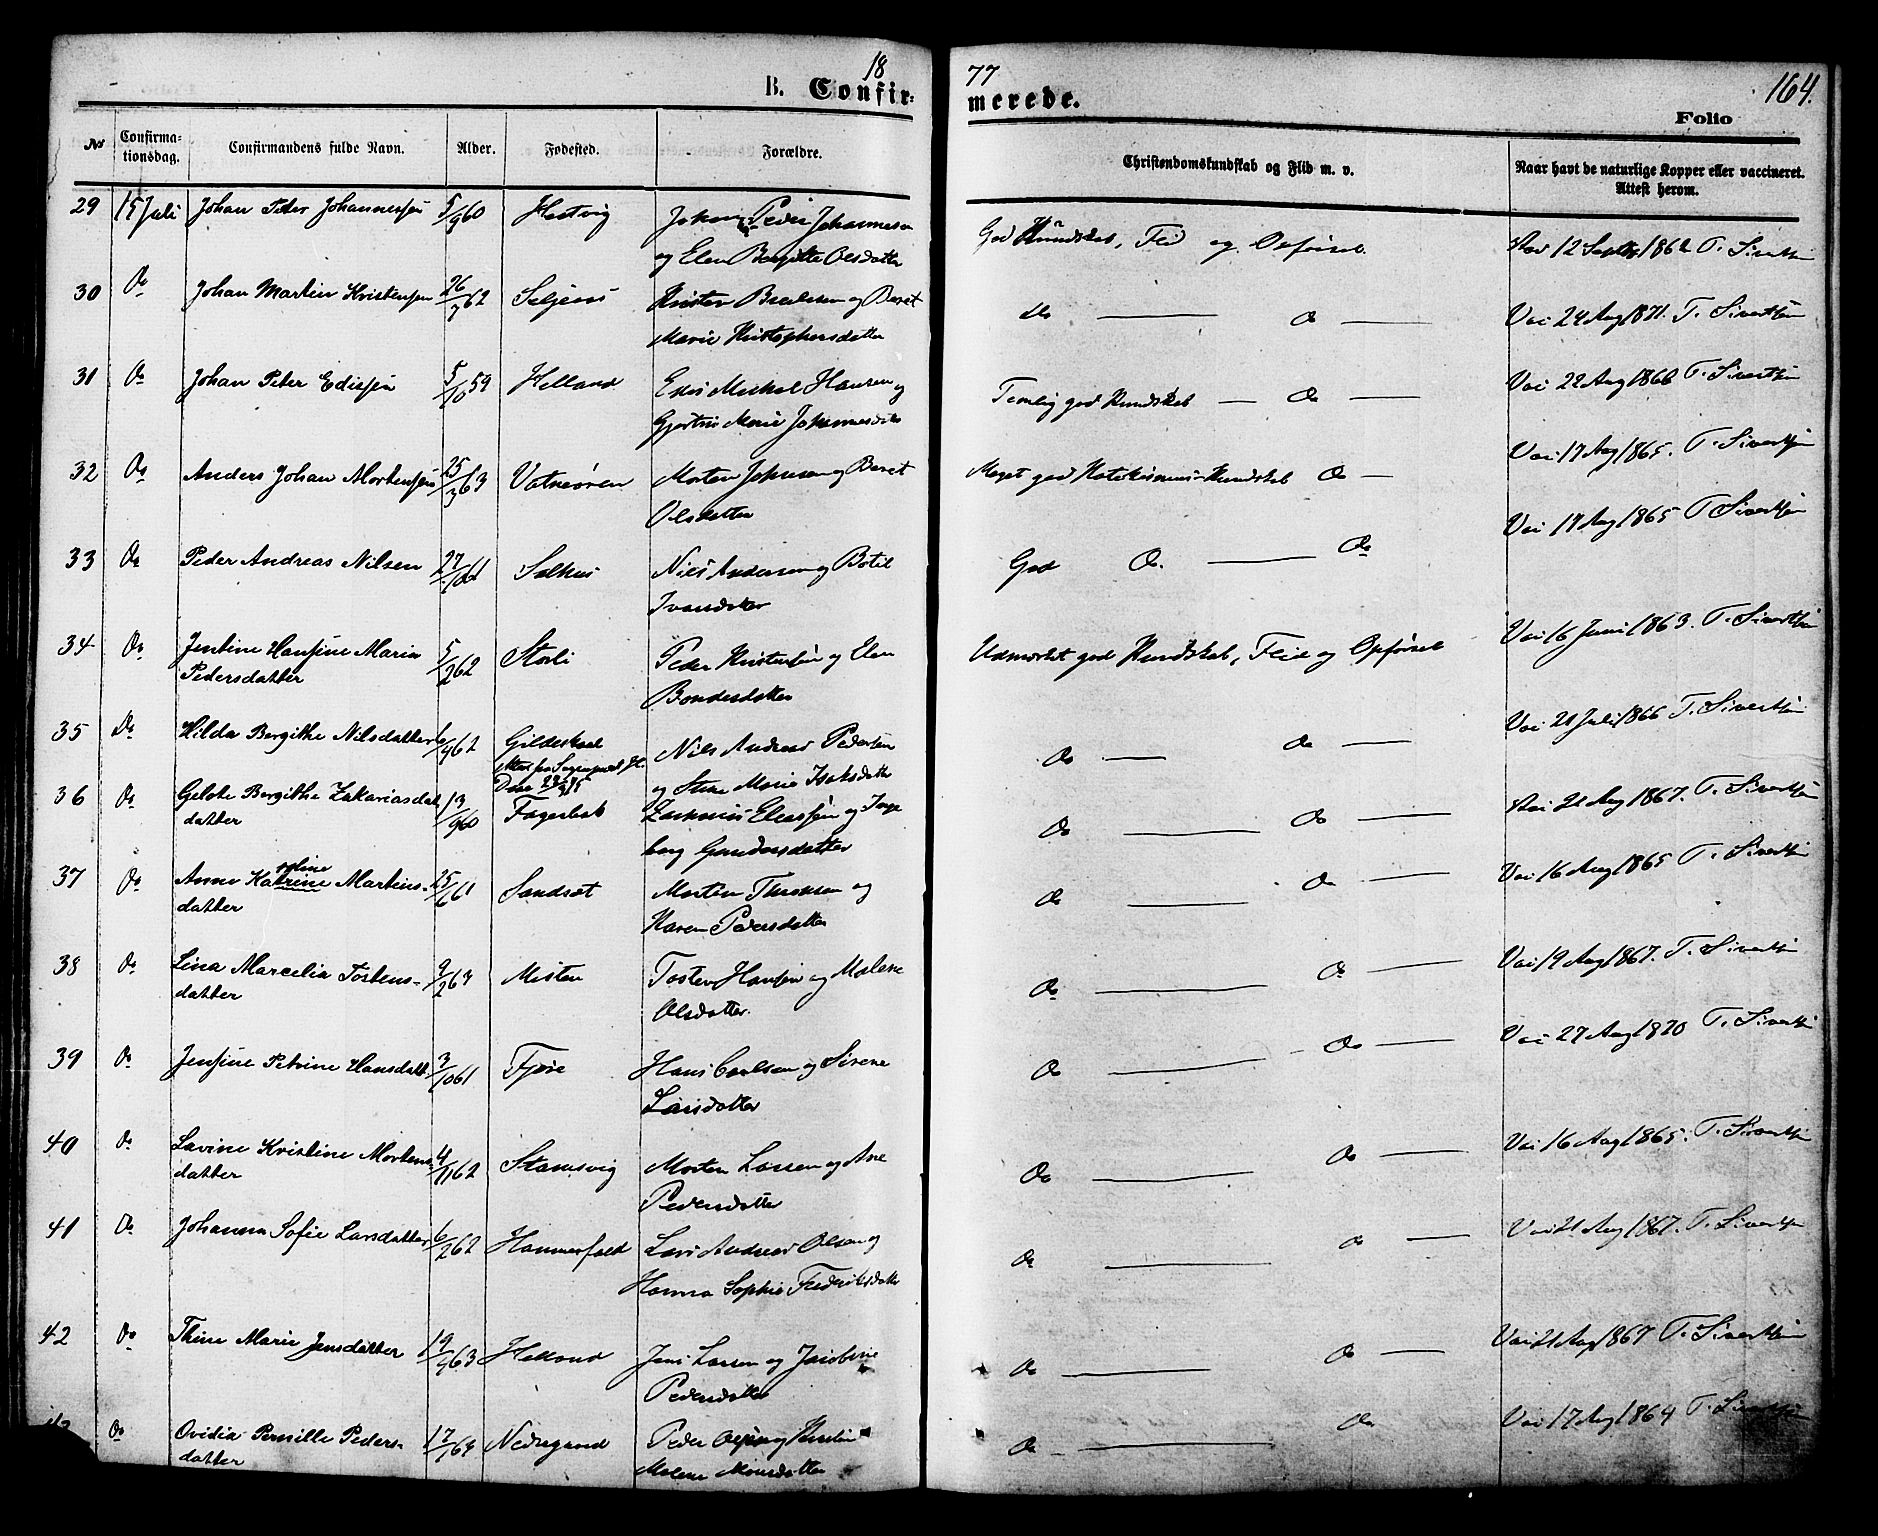 18
77
164.
B. Confir-
merede.
Folio
No
Confirma-
tionsdag.
Confirmandens fulde Navn.
Alder.
Fødested.
Forældre.
Christendomskundskab og Flid m. v.
Naar havt de naturlige Kopper eller vaccineret.
Attest herom.
29 15 Juli Johan Peter Johannessen 5/9 60 Johan Peder Johannesen
og Elen Bergitte Olsdatter
God Kundskab, Flid og Opførsel.
Vac 12 Septbr 1862 T. Sivertsen
30 Do Johan Martin Kristensen 26/3 62 og Beret
Marie Kristophersdatter
Do Do
Vac 24 Aug 1871. T. Sivertsen
31 Do Johan Peter Edissen 5/10 59 Helland Edis Mikal Hansen og
Marie Johannesdtr
Temlig god Kundskab Do
Vac 22 Aug 1866 T. Sivertsen
32 Do Anders Johan Mortensen 25/3 63 Vatnøren Morten Johnsen og Beret
Olsdatter
Meget god Katekismus-Kundskab Do
Vac 17 Aug 1865. T. Sivertsen
33 Do Peder Andreas Nilsen Nils Andersen og Botil
Ivarsdatter
God Do. Do
Vac 17 Aug 1865 T Sivertsen
34 Do Jentine Hansine Maria
Pedersdatter
5/2 62 Storli Peder Kristensen og Elen
Bondesdatter
Udmærket god Kundskab, Flid og Opførsel
Vac 16 Juni 1863. T. Sivertsen
35 Do Hilda Bergithe Nilsdatter Gildeskaal
Nils Andreas Pedersen
og Stine Marie Isaksdatter
Do Do
Vac 21 Juli 1866 T. Sivertsen
36 Do Bergithe Zakarias
datter
13/9 60 Fagerbak Eliassen og Inge
borg Gundersdatter
Do Do
Vac 21 Aug 1867. T. Sivertsen
37 Do Anne Katrine Martins-
datter
25/6 61 Sandsæt Morten og
Karen Pedersdatter
Do Do
Vac 16 Aug 1865 T. Sivertsen
38 Do Lina Marcelia Tostens-
datter
9/2 63 Misten Tosten Hansen og Malene
Olsdatter.
Do Do
Vac 19 Aug 1867. T. Sivertsen
39 Do Jensine Petrine Hansdatt. 3/10 61 Fjøre Hans Carlsen og Sirene
Larsdatter
Do Do
Vac 27 Aug 1870 T. Sivertsen
40 Do Lavine Kristine Mortens
datter
4/11 62 Stamsvig Morten Larsen og Ane
Pedersdatter
Do Do
Vac 16 Aug 1865. T. Sivertsen
41 Do Johanna Sofie Larsdatter 6/2 62 Hammerfald Lars Andreas Olsen og
Hanna Sophie Frederiksdatter
Do Do
Vac 21 Aug 1867. T. Sivertsen
42 Do Thine Marie Jensdatter Helland Jens Larsen og Jacobine
Pedersdatter
Do Do
Vac 21 Aug 1867 T. Sivertsen
Do Ovidia Pernille Peders-
datter
Nedregaard Peder Olsen og
Malene Monsdatter
Do Do
Vac 17 Aug 1864 T. Sivertsen